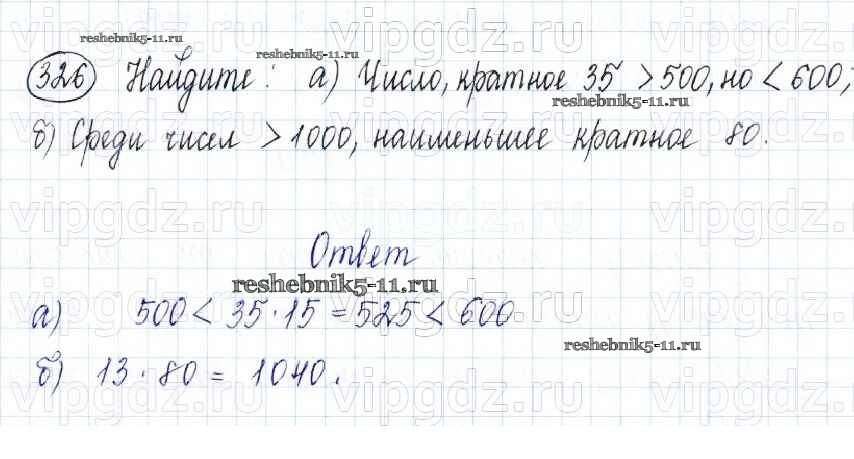 vipgdz.ru vipgdz.ru vipgdz.ru
reshebnik5-11.ru
reshebnik5-11.ru
326 Найдите: а) Число, кратное 35 > 500, но < 600;
reshebnik5-11.ru
б) Среди чисел > 1000, наименьшее кратное 80.
vipgdz.ru vipgdz.ru vipgdz.ru
Ответ
reshebnik5-11.ru
vipgdz.ru vipgdz.ru vipgdz.ru
а) 500 < 35 · 15 = 525 < 600
reshebnik5-11.ru
б) 13 · 80 = 1040.
vipgdz.ru vipgdz.ru vipgdz.ru